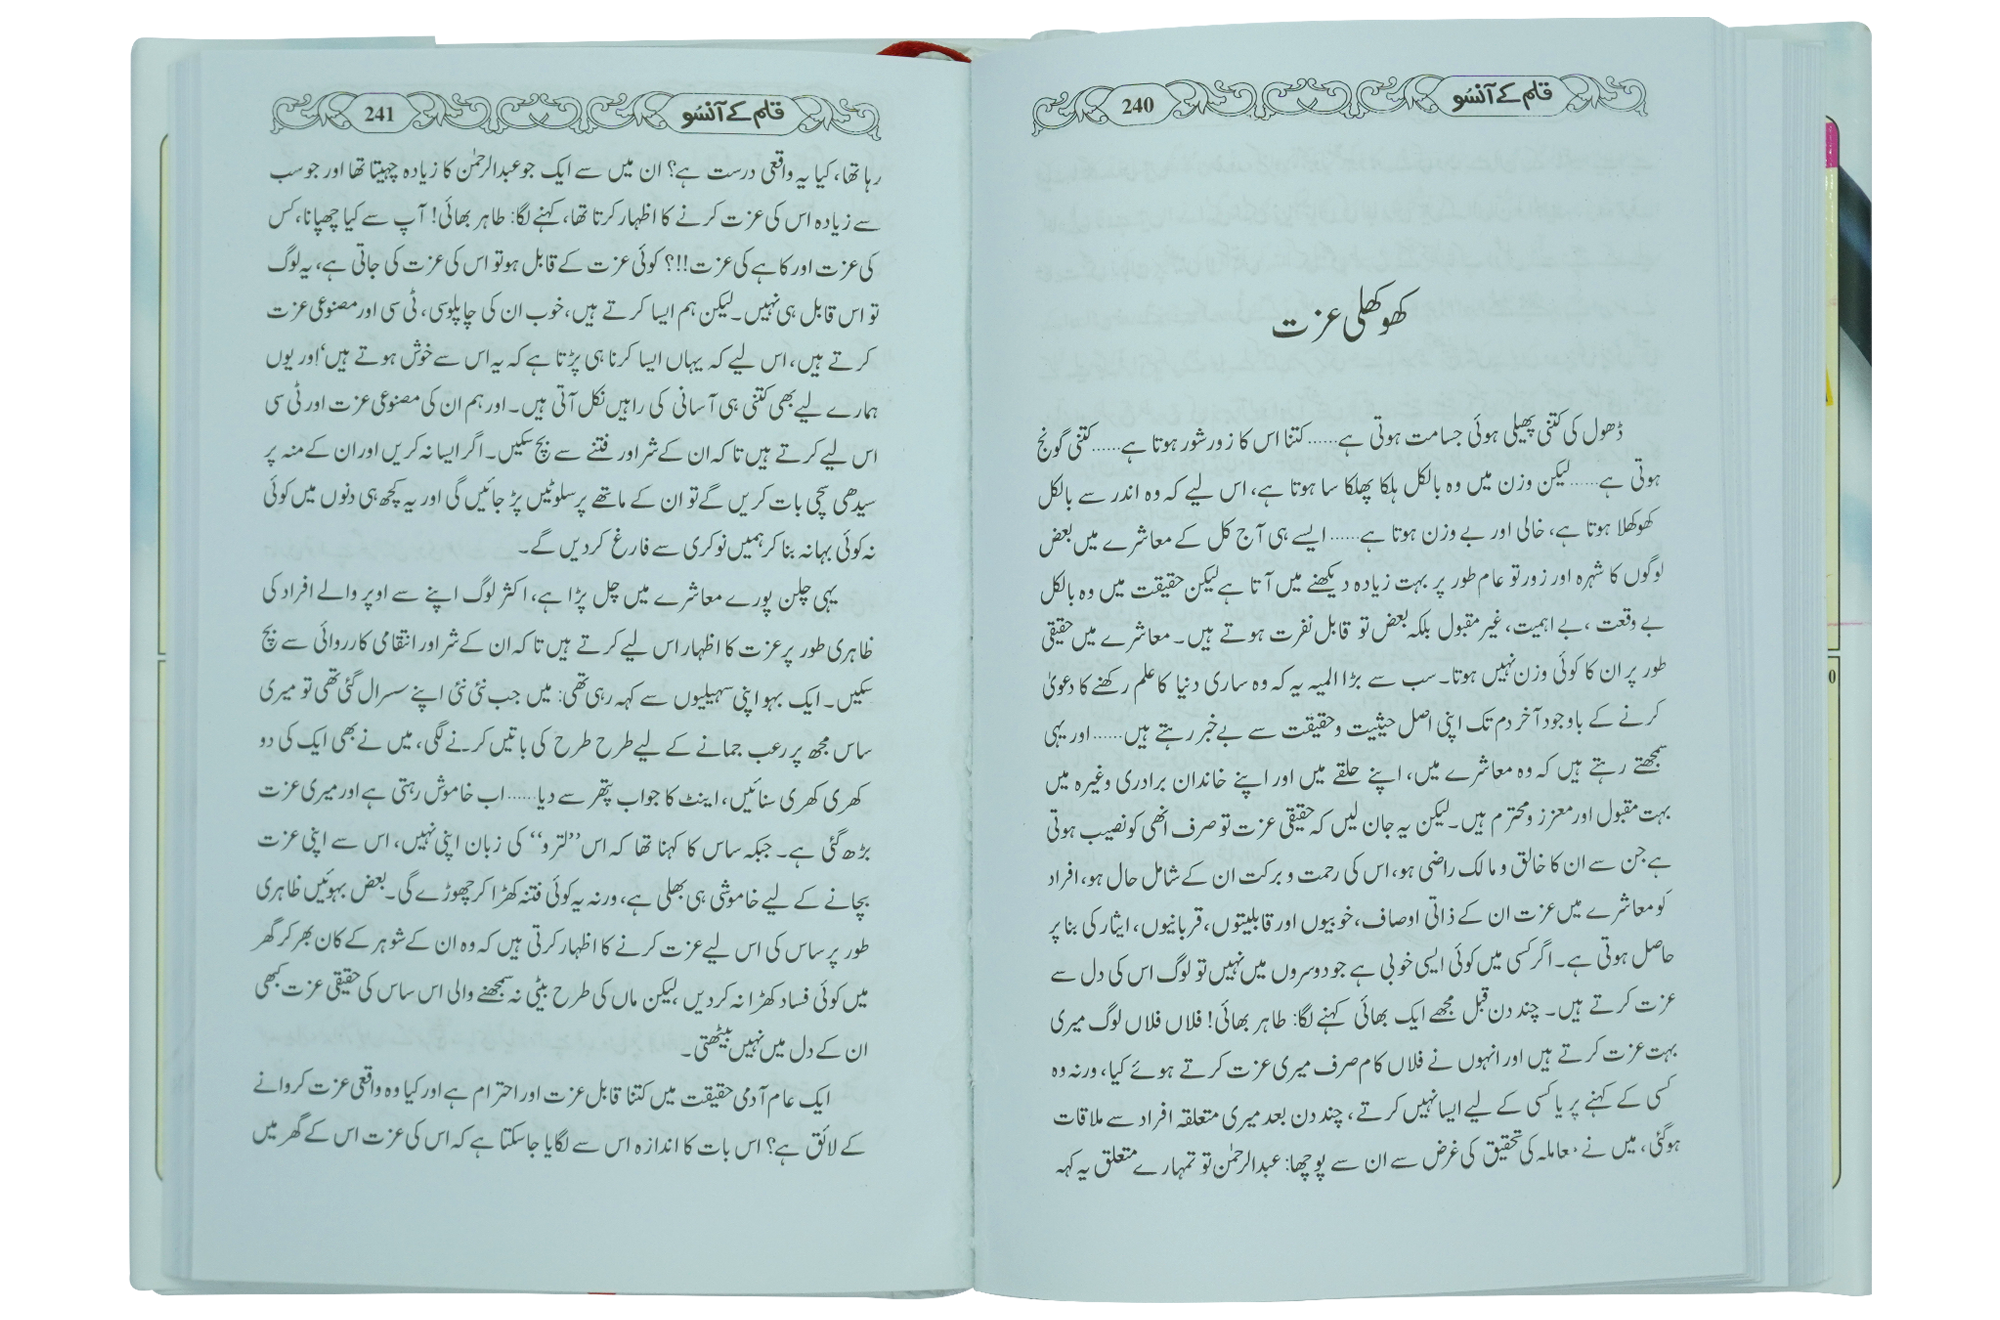 240
قلم کے آنسو
کھوکھلی عزت
ڈھول کی کتنی پھیلی ہوئی جسامت ہوتی ہے......کتنا اس کا زور شور ہوتا ہے......کتنی گونج
ہوتی ہے......لیکن وزن میں وہ بالکل ہلکا پھلکا سا ہوتا ہے، اس لیے کہ وہ اندر سے بالکل
کھوکھلا ہوتا ہے، خالی اور بے وزن ہوتا ہے...... ایسے ہی آج کل کے معاشرے میں بعض
لوگوں کا شہرہ اور زور تو عام طور پر بہت زیادہ دیکھنے میں آتا ہے لیکن حقیقت میں وہ بالکل
بے وقعت ، بے اہمیت، غیر مقبول بلکہ بعض تو قابل نفرت ہوتے ہیں۔ معاشرے میں حقیقی
طور پر ان کا کوئی وزن نہیں ہوتا۔ سب سے بڑا المیہ یہ کہ وہ ساری دنیا کا علم رکھنے کا دعویٰ
کرنے کے باوجود آخر دم تک اپنی اصل حیثیت و حقیقت سے بے خبر رہتے ہیں...... اور یہی
سمجھتے رہتے ہیں کہ وہ معاشرے میں، اپنے حلقے میں اور اپنے خاندان برادری وغیرہ میں
بہت مقبول اور معزز و محترم ہیں۔ لیکن یہ جان لیں کہ حقیقی عزت تو صرف انھی کو نصیب ہوتی
ہے جن سے ان کا خالق و مالک راضی ہو، اس کی رحمت و برکت ان کے شامل حال ہو، افراد
کو معاشرے میں عزت ان کے ذاتی اوصاف، خوبیوں اور قابلیتوں، قربانیوں، ایثار کی بنا پر
حاصل ہوتی ہے۔ اگر کسی میں کوئی ایسی خوبی ہے جو دوسروں میں نہیں تو لوگ اس کی دل سے
عزت کرتے ہیں۔ چند دن قبل مجھے ایک بھائی کہنے لگا: طاہر بھائی! فلاں فلاں لوگ میری
بہت عزت کرتے ہیں اور انہوں نے فلاں کام صرف میری عزت کرتے ہوئے کیا، ورنہ وہ
کسی کے کہنے پر یا کسی کے لیے ایسا نہیں کرتے، چند دن بعد میری متعلقہ افراد سے ملاقات
ہوگئی، میں نے معاملہ کی تحقیق کی غرض سے ان سے پوچھا: عبدالرحمٰن تو تمہارے متعلق یہ کہہ
241
قلم کے آنسو
رہا تھا، کیا یہ واقعی درست ہے؟ ان میں سے ایک جو عبدالرحمٰن کا زیادہ چہیتا تھا اور جو سب
سے زیادہ اس کی عزت کرنے کا اظہار کرتا تھا، کہنے لگا: طاہر بھائی! آپ سے کیا چھپانا، کس
کی عزت اور کاہے کی عزت!!؟ کوئی عزت کے قابل ہو تو اس کی عزت کی جاتی ہے، یہ لوگ
تو اس قابل ہی نہیں۔ لیکن ہم ایسا کرتے ہیں، خوب ان کی چاپلوسی، ٹی سی اور مصنوعی عزت
کرتے ہیں، اس لیے کہ یہاں ایسا کرنا ہی پڑتا ہے کہ یہ اس سے خوش ہوتے ہیں‘ اور یوں
ہمارے لیے بھی کتنی ہی آسانی کی راہیں نکل آتی ہیں۔ اور ہم ان کی مصنوعی عزت اور ٹی سی
اس لیے کرتے ہیں تا کہ ان کے شر اور فتنے سے بچ سکیں۔ اگر ایسا نہ کریں اور ان کے منہ پر
سیدھی سچی بات کریں گے تو ان کے ماتھے پر سلوٹیں پڑ جائیں گی اور یہ کچھ ہی دنوں میں کوئی
نہ کوئی بہانہ بنا کر ہمیں نوکری سے فارغ کر دیں گے۔
یہی چلن پورے معاشرے میں چل پڑا ہے، اکثر لوگ اپنے سے اوپر والے افراد کی
ظاہری طور پر عزت کا اظہار اس لیے کرتے ہیں تا کہ ان کے شر اور انتقامی کارروائی سے بچ
سکیں۔ ایک بہو اپنی سہیلیوں سے کہہ رہی تھی: میں جب نئی نئی اپنے سسرال گئی تھی تو میری
ساس مجھ پر رعب جمانے کے لیے طرح طرح کی باتیں کرنے لگی، میں نے بھی ایک کی دو
کھری کھری سنائیں، اینٹ کا جواب پتھر سے دیا......اب خاموش رہتی ہے اور میری عزت
بڑھ گئی ہے۔ جبکہ ساس کا کہنا تھا کہ اس ’’لترو‘‘ کی زبان اپنی نہیں، اس سے اپنی عزت
بچانے کے لیے خاموشی ہی بھلی ہے، ورنہ یہ کوئی فتنہ کھڑا کر چھوڑے گی۔ بعض بہوئیں ظاہری
طور پر ساس کی اس لیے عزت کرنے کا اظہار کرتی ہیں کہ وہ ان کے شوہر کے کان بھر کر گھر
میں کوئی فساد کھڑا نہ کردیں ،لیکن ماں کی طرح بیٹی نہ سمجھنے والی اس ساس کی حقیقی عزت کبھی
ان کے دل میں نہیں بیٹھتی۔
ایک عام آدمی حقیقت میں کتنا قابل عزت اور احترام ہے اور کیا وہ واقعی عزت کروانے
کے لائق ہے؟ اس بات کا اندازہ اس سے لگایا جاسکتا ہے کہ اس کی عزت اس کے گھر میں